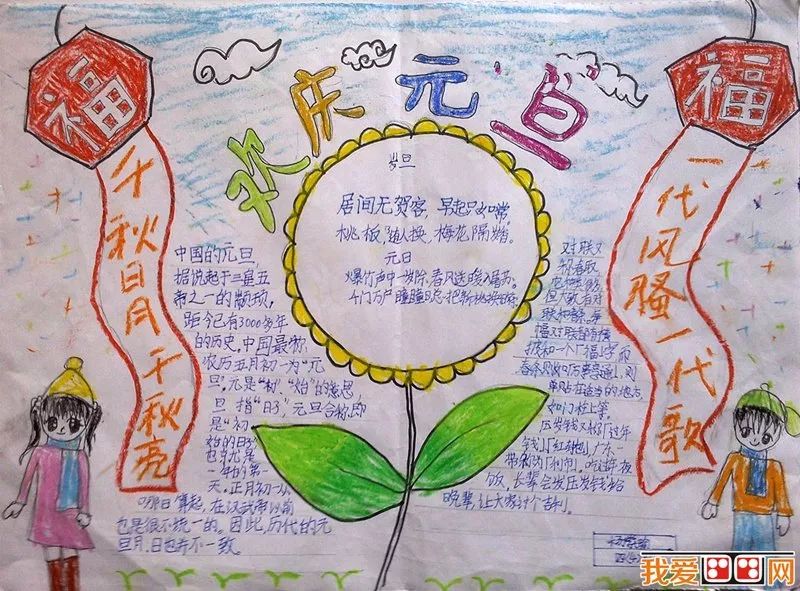 欢庆元旦
福
千秋日月千秋亮
福
一代风骚一代歌
岁旦
居间无贺客，早起只如常，
桃板随人换，梅花隔
元日
爆竹声中一岁除，春风送暖入屠苏。
千门万户曈曈日，总把新桃换旧符。
中国的元旦，
据说起于三皇五
帝之一的颛顼，
距今已有3000多年
的历史。中国最初
农历正月初一为“元
旦”，元是“初”“始”的意思，
旦指“日子”，元旦合称即
是“初
始的日子”
也就是
一年的第一
天。正月初一从
哪日算起，在汉武帝以前
也是很不统一的。因此，历代的元
旦月、日也并不一致。
对联又
福对联
春条
单贴在适当的地方，
如门柱上等。
压岁钱又称「过年
钱」「红包」广东一
带称为「利市」。吃过年夜
饭，长辈会发压岁钱给
晚辈，让大家讨个吉利。
我爱网